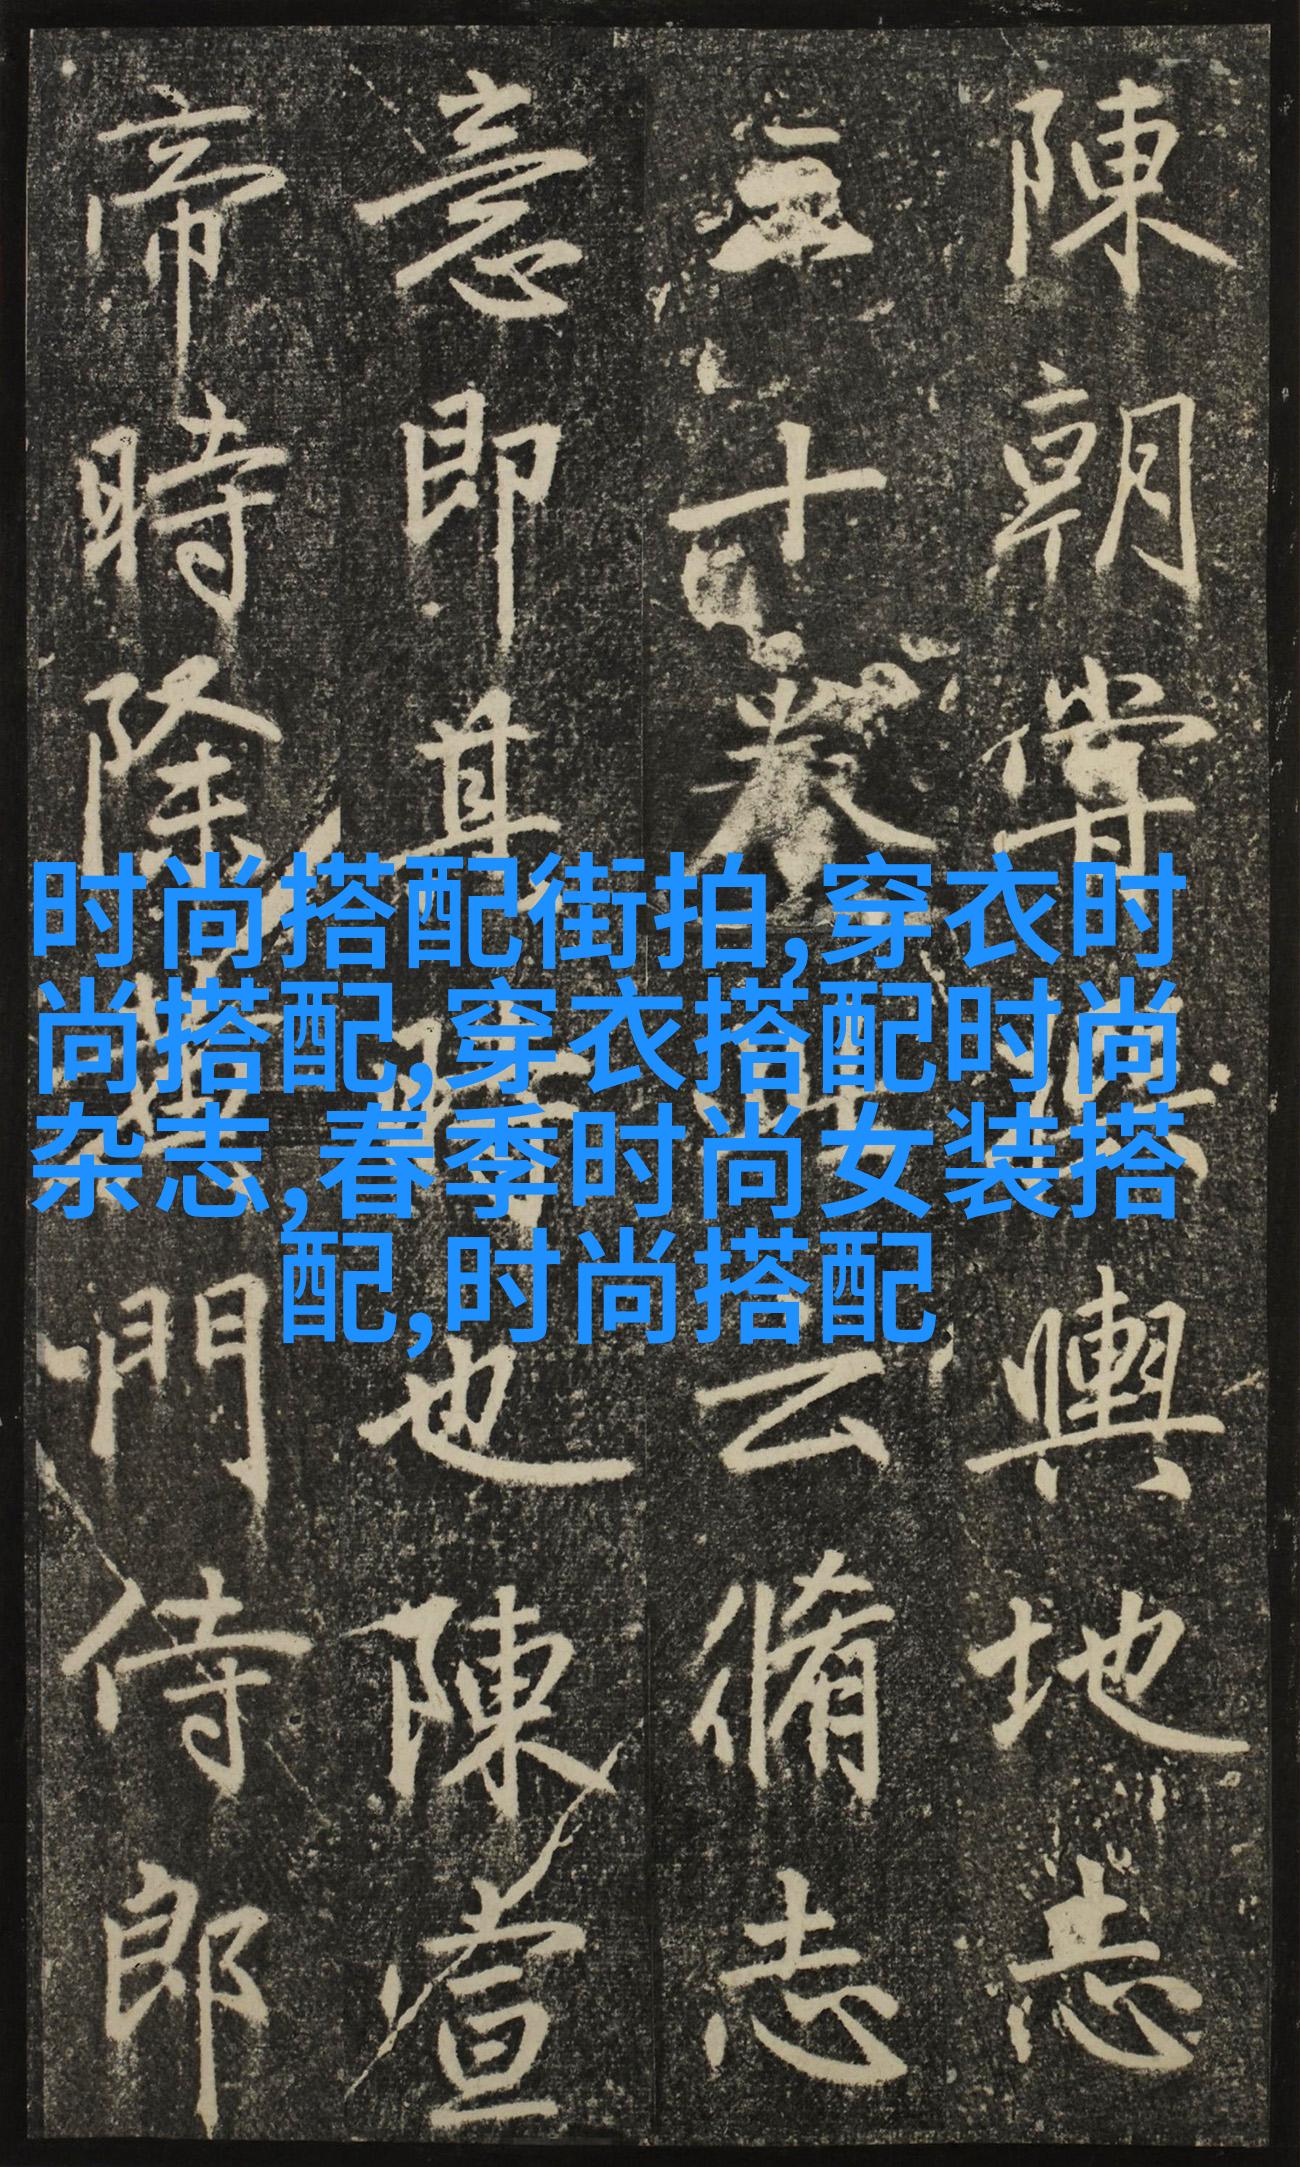 陳朝嘗輿地志
十卷云脩志
意即其時也陳宣
帝時除黃門侍郎
时尚搭配街拍,穿衣时
尚搭配,穿衣搭配时尚
杂志,春季时尚女装搭
配,时尚搭配